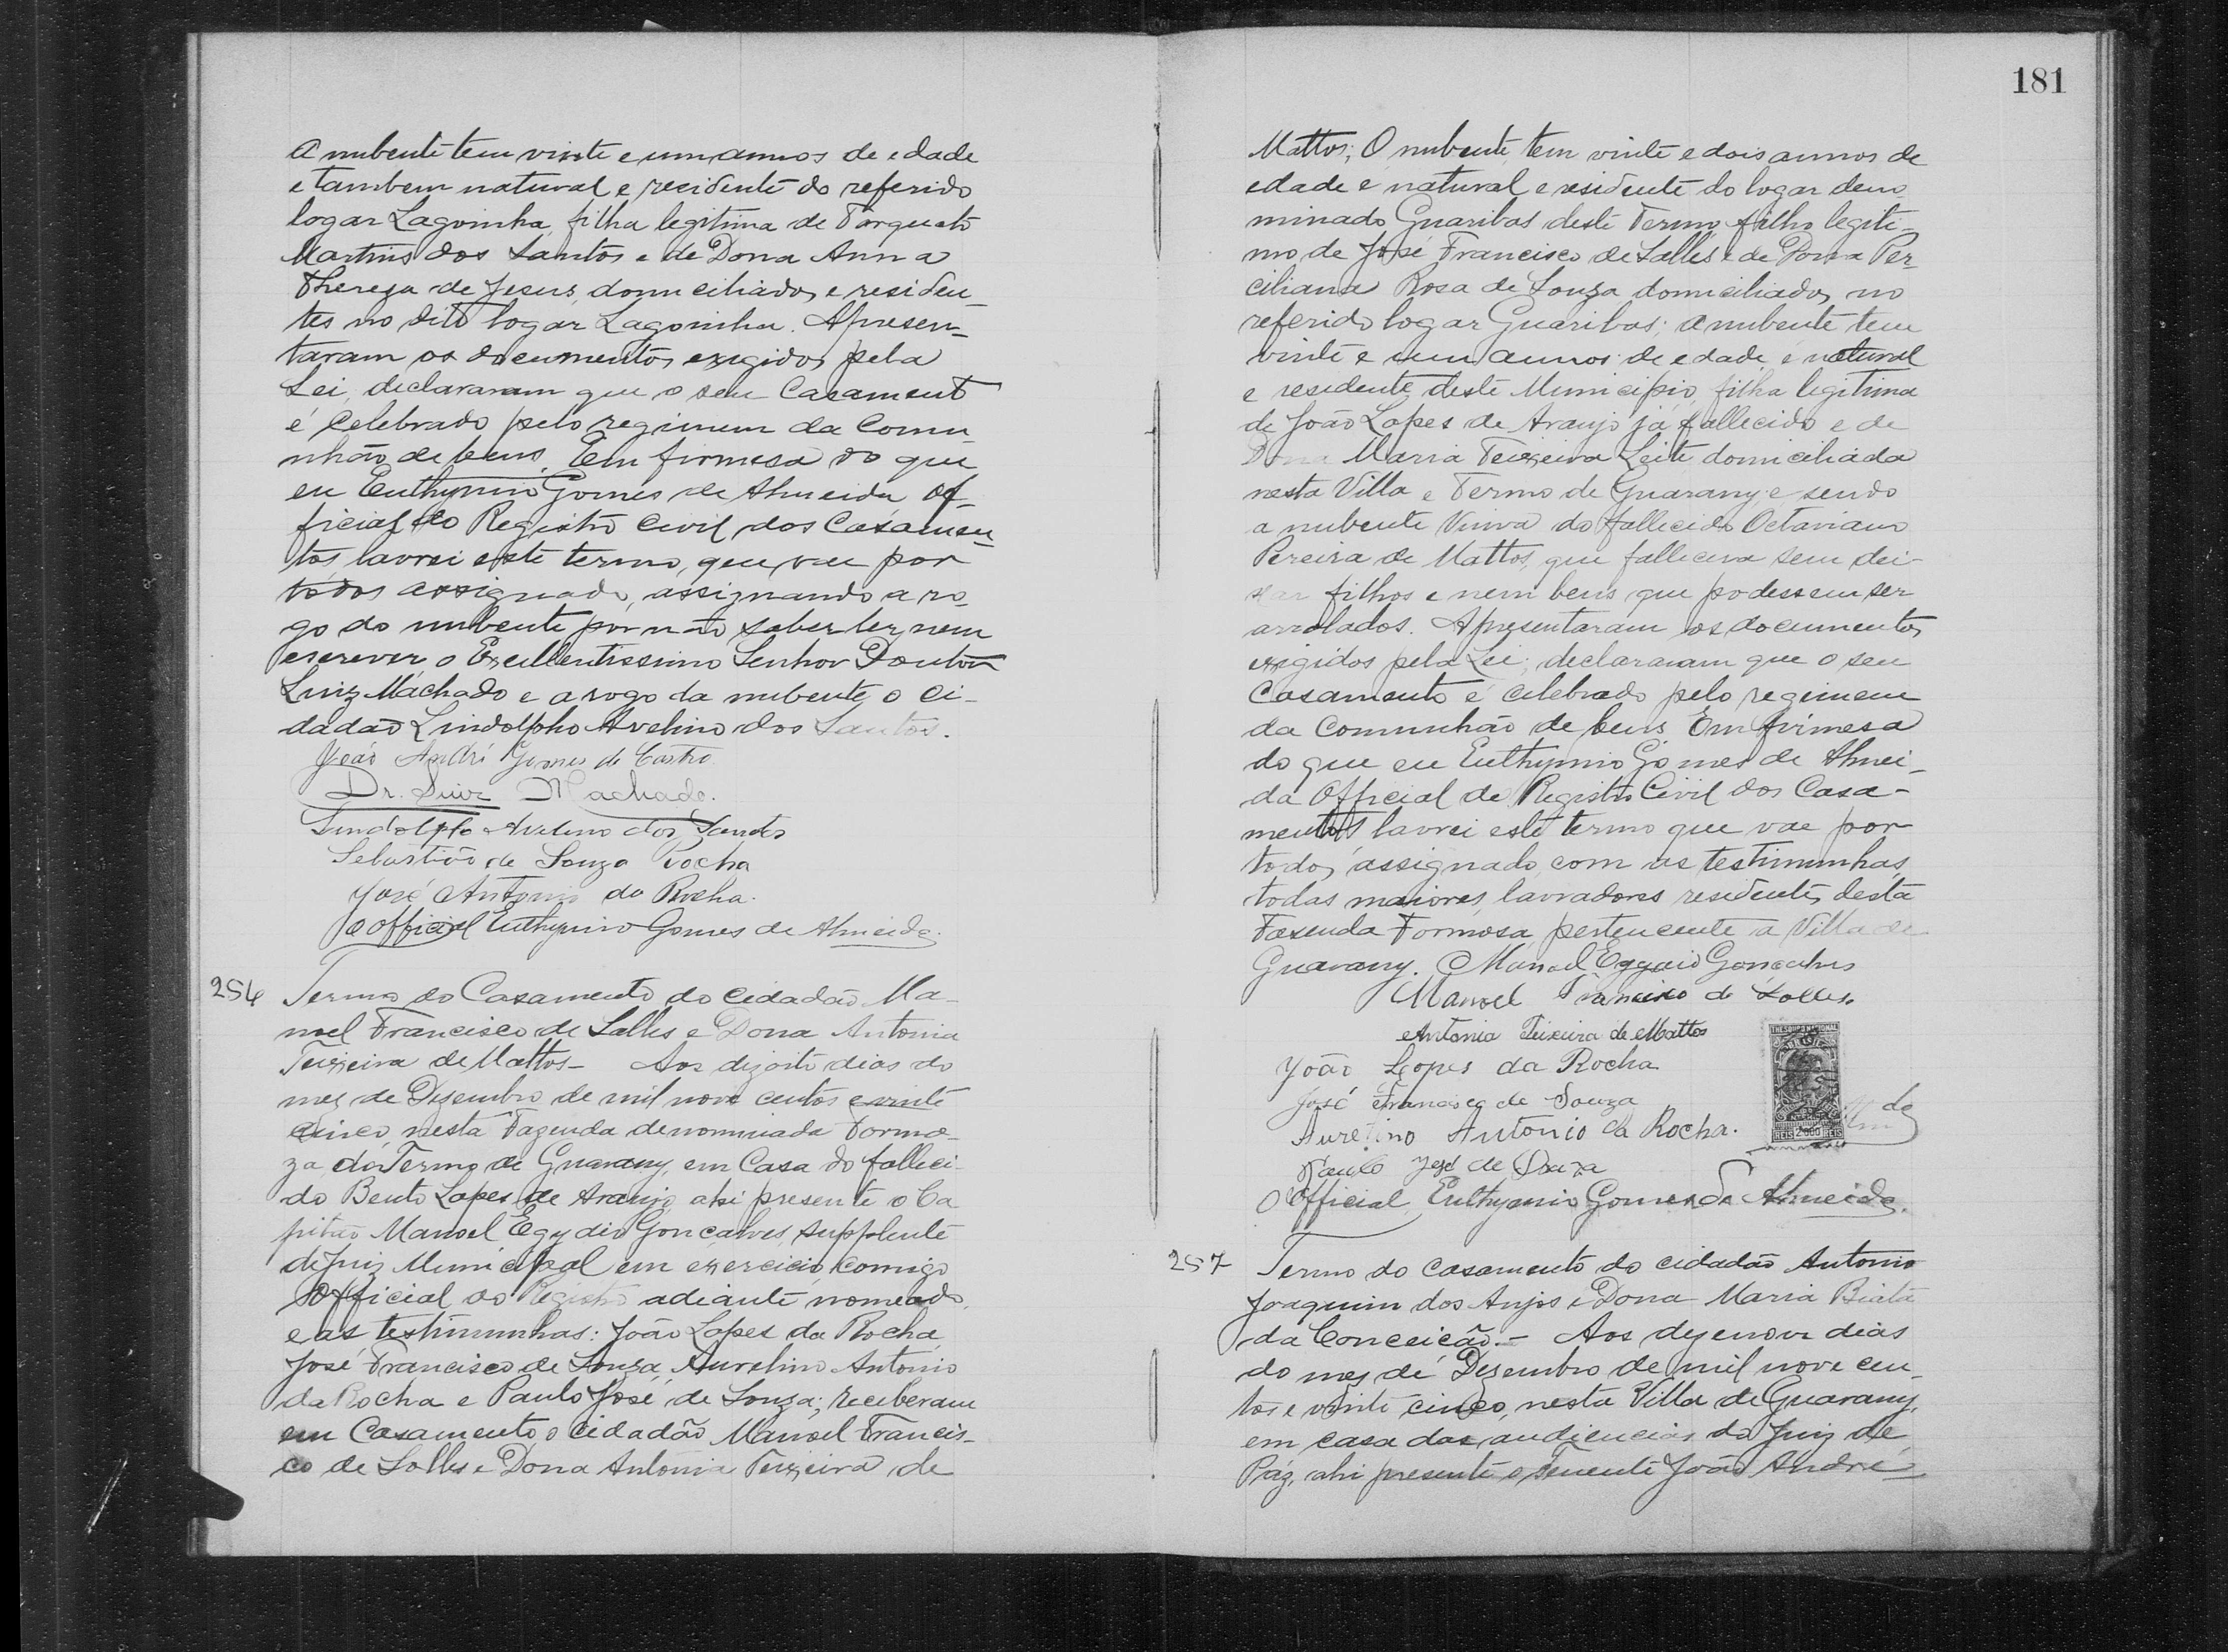 A nubente tem vinte e um annos de edade
e tambem natural e residente do referido
logar Lagoinha, filha legitima de Torquato
Martins dos Santos e de Dona Anna
Thereza de Jesus, domiciliados e residen_
tes no dito logar Lagoinha. Apresen_
taram os documentos exigidos pela
Lei, declararam que o seu Casament
é celebrado pelo regimem da Commu_
nhão de bens. Em firmesa do que
eu Euthymio Gomes de Almeida Of_
ficial do Registro Civil dos Casamen_
tos, lavrei este termo, que vae por
todos assignado, assignando a ro_
go do nubente por não saber ler, nem
escrever o Excellentissimo Senhor Doutor
Luiz Machado e a rogo da nubente, o ci_
dadão Lindolpho Avelino dos Santos.
João André Gomes de Castro
Dr. Luiz Machado.
Lindolpho Avelino dos Santos
Sebastião de Souza Rocha
José Antonio da Rocha.
O official Euthymio Gomes de Almeida.
256 Termo do Casamento do Cidadão Ma_
noel Francisco de Salles e Dona Antonia
Teixeira de Mattos_ Aos dizoito dias do
mez de Dezembro de mil nove centos e vinte
cinco, nesta Fazenda denominada Formo_
za do Termo de Guarany, em Casa do falleci_
do Bento Lopes de Araujo, ahi presente o Ca
pitão Manoel Egydio Gonçalves, Supplente
de Juiz Municipal em exercicio, comigo
Official do Registro adiante nomeado,
e as testimunhas: João Lopes da Rocha,
José Francisco de Souza, Aurelino Antonio
da Rocha e Paulo José de Souza; receberam
em Casamento, o cidadão Manoel Francis_
co de Salles e Dona Antonia Teixeira de
181
Mattos; O nubente, tem vinte e dois annos de
edade e natural e residente do logar deno_
minado Guaribas deste Termo, filho legiti_
mo de José Francisco de Salles e de Dona Per_
ciliana Rosa de Souza domiciliados no
referido logar Guaribas; a nubente tem
vinte e um annos de edade, e natural
e residente deste Municipio, filha legitima
de João Lopes de Araujo já fallecido e de
Dona Maria Teixeira Leite domiciliada
nesta Villa e Termo de Guarany e sendo
a nubente Viuva do fallecido Octaviano
Pereira de Mattos, que fallecera sem dei_
xar filhos e nem bens que podessem ser
arrolados. Apresentaram os documentos
exigidos pela Lei; declararam que o seu
Casamento é celebrado pelo regimem
da Communhão de bens. Em firmesa
do que eu Euthymio Gomes de Almei_
da Official de Registro Civil dos Casa_
mentos lavrei este termo que vae por
todos assignado com as testimunhas,
todas maiores, lavradores residentes desta
Fazenda Formosa, pertencente a Villa de
Guarany. Manoel Egydio Gonçalves
Manoel Francisco de Salles.
Antonia Teixeira de Mattos
João Lopes da Rocha
José Francisco de Souza
Aurelino Antonio da Rocha.
Paulo José de Souza
O Official, Euthymio Gomes de Almeida.
THESOURO NACIONAL
BRASIL
REIS 2000 REIS
257 Termo do casamento do cidadão Antonio
Joaquim dos Anjos e Dona Maria Biata
da Conceição._ Aos dezenove dias
do mez de Dezembro de mil nove cen_
tos e vinte cinco, nesta Villa de Guarany,
em casa das audiencias do Juiz de
Páz, ahi presente o Tenente João André